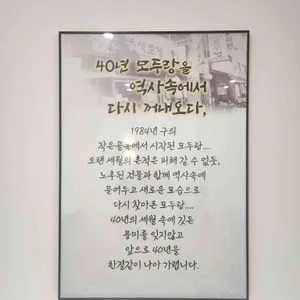 40년 모두랑을
역사속에서
다시 꺼내오다,
1984년 구의
작은골목에서 시작된 모두랑....
오랜 세월의 흔적은 피해 갈 수 없듯,
노후된 건물과 함께 역사속에
묻어두고 새로운 모습으로
다시 찾아온 모두랑....
40년의 세월 속에 깃든
풍미를 잊지않고
앞으로 40년을
한결같이 나아 가렵니다.